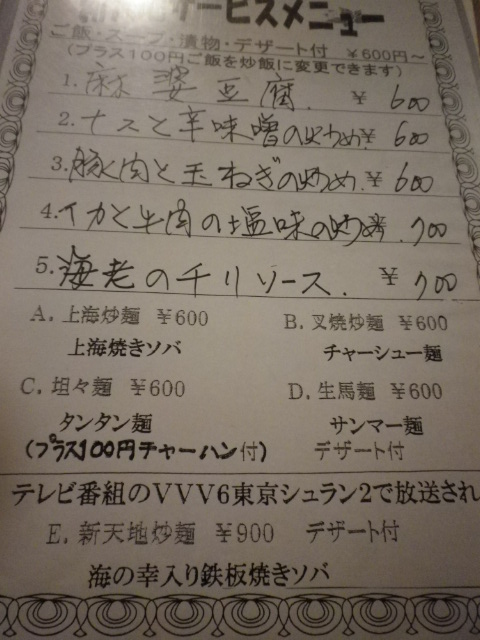 サービスメニュー
ご飯・スープ・漬物・デザート付 ￥600円～
(プラス100円ご飯を炒飯に変更できます)
1. 麻婆豆腐. ￥600
2. ナスと辛味噌の炒め ￥600
3. 豚肉と玉ねぎの炒め. ￥600
4. イカと牛肉の塩味の炒め 700
5. 海老のチリソース. ￥700
A. 上海炒麺 ￥600
上海焼きソバ
B. 叉焼炒麺 ￥600
チャーシュー麺
C. 坦々麺 ￥600
タンタン麺
(プラス100円チャーハン付)
D. 生馬麺 ￥600
サンマー麺
デザート付
テレビ番組のVVV6東京シュラン2で放送され
E. 新天地炒麺 ￥900 デザート付
海の幸入り鉄板焼きソバ